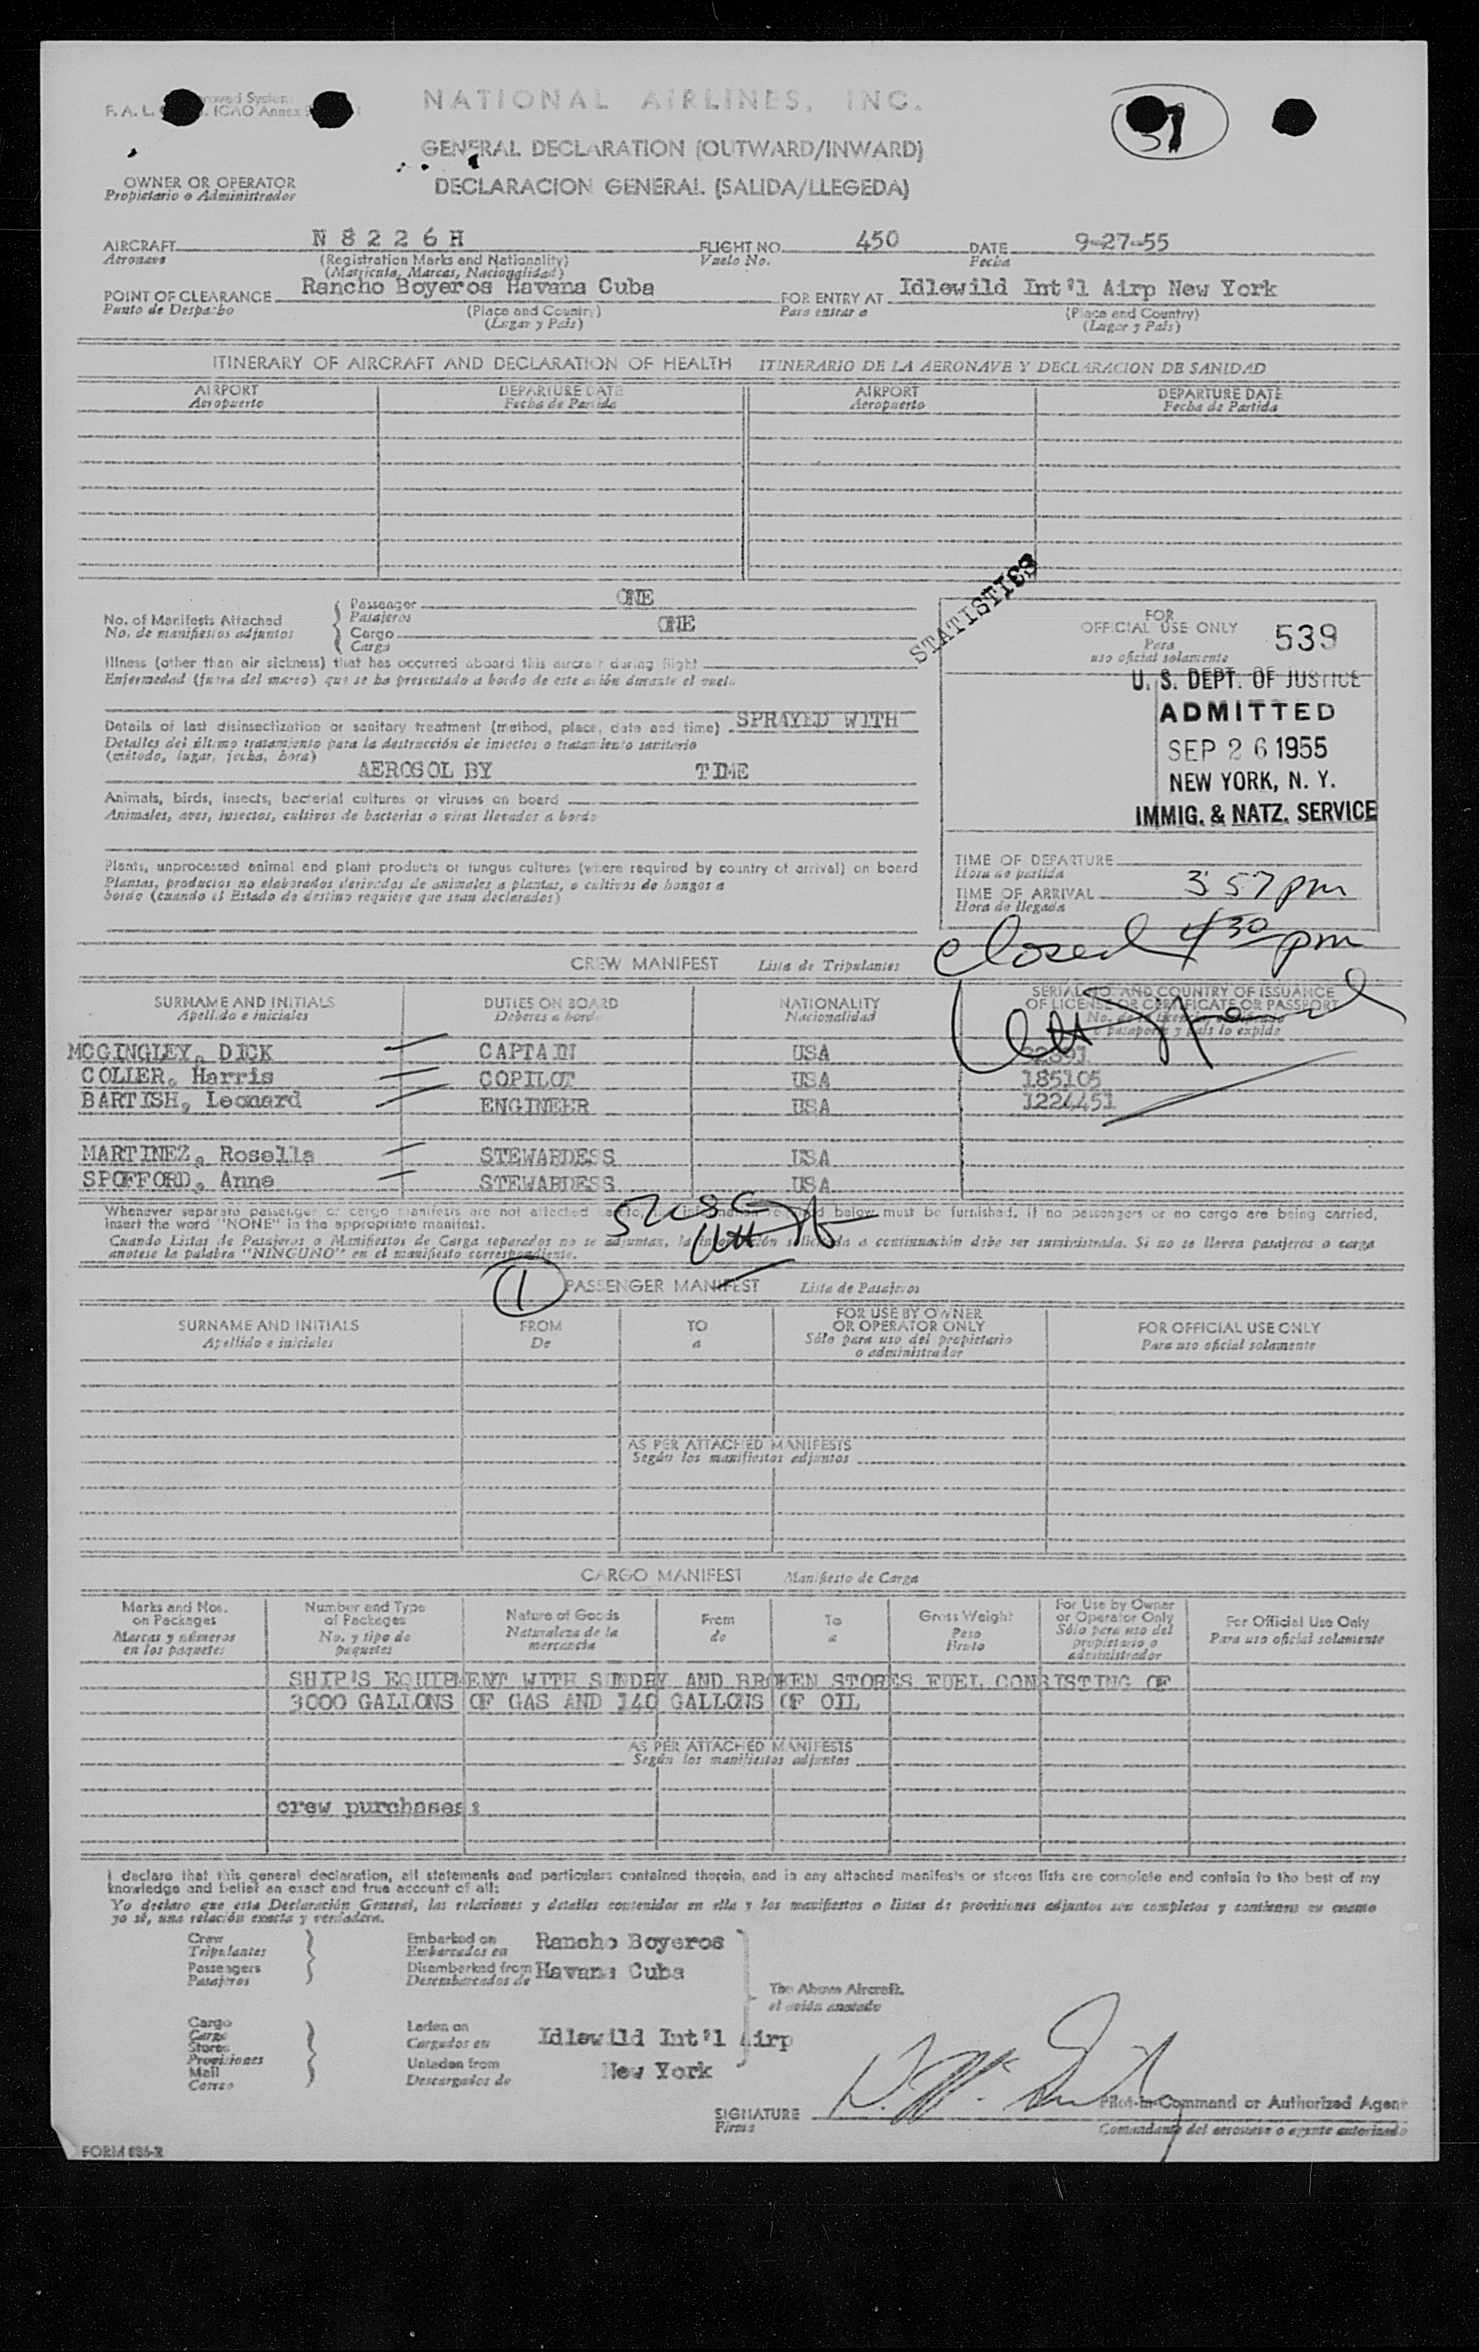 NATIONAL AIRLINES, INC.
F. A. L. ICAO Annex
GENERAL DECLARATION (OUTWARD/INWARD)
DECLARACION GENERAL (SALIDA/LLEGEDA)
OWNER OR OPERATOR
Propietario o Administrador
AIRCRAFT N 8 2 2 6 H FLIGHT NO. 450 DATE 9-27-55
Aeronave (Registration Marks and Nationality) Vuelo No. Fecha
(Matricula, Marcas, Nacionalidad)
POINT OF CLEARANCE Rancho Boyeros Havana Cuba FOR ENTRY AT Idlewild Int'l Airp New York
Punto de Despacho (Place and Country) Para entrar a (Place and Country)
(Lugar y Pais) (Lugar y Pais)
ITINERARY OF AIRCRAFT AND DECLARATION OF HEALTH ITINERARIO DE LA AERONAVE Y DECLARACION DE SANIDAD
AIRPORT DEPARTURE DATE AIRPORT DEPARTURE DATE
Aeropuerto Fecha de Partida Aeropuerto Fecha de Partida
STATISTICS
No. of Manifests Attached
No. de manifiestos adjuntos
Passenger ONE
Pasajeros
Cargo ONE
Carga
Illness (other than air sickness) that has occurred aboard this aircraft during flight
Enfermedad (fuera del mareo) que se ha presentado a bordo de este avión durante el vuelo
Details of last disinsectization or sanitary treatment (method, place, date and time) SPRAYED WITH
Detalles del último tratamiento para la destrucción de insectos o tratamiento sanitario
(método, lugar, fecha, hora)
AEROSOL BY TIME
Animals, birds, insects, bacterial cultures or viruses on board
Animales, aves, insectos, cultivos de bacterias o virus llevados a bordo
Plants, unprocessed animal and plant products or fungus cultures (where required by country of arrival) on board
Plantas, productos no elaborados derivados de animales a plantas, o cultivos de hongos a
bordo (cuando el Estado de destino requiere que sean declarados)
FOR
OFFICIAL USE ONLY 539
Para
uso oficial solamente
U. S. DEPT. OF JUSTICE
ADMITTED
SEP 26 1955
NEW YORK, N. Y.
IMMIG. & NATZ. SERVICE
TIME OF DEPARTURE
Hora de partida
TIME OF ARRIVAL 3 57 pm
Hora de llegada
closed 4 30 pm
CREW MANIFEST Lista de Tripulantes
SURNAME AND INITIALS DUTIES ON BOARD NATIONALITY SERIAL NO. AND COUNTRY OF ISSUANCE
Apellido e iniciales Deberes a bordo Nacionalidad OF LICENSE OR CERTIFICATE OR PASSPORT
MCGINGLEY, DICK CAPTAIN USA
COLLER, Harris COPILOT USA 185105
BARTISH, Leonard ENGINEER USA 1224451
MARTINEZ, Rosella STEWARDESS USA
SPOFFORD, Anne STEWARDESS USA
5 USC
Whenever separate passenger or cargo manifests are not attached below must be furnished. If no passengers or no cargo are being carried,
insert the word "NONE" in the appropriate manifest.
Cuando Listas de Pasajeros o Manifiestos de Carga separados no se adjuntan, la información solicitada a continuación debe ser suministrada. Si no se llevan pasajeros o carga
anotese la palabra "NINGUNO" en el manifiesto correspondiente.
1 PASSENGER MANIFEST Lista de Pasajeros
SURNAME AND INITIALS FROM TO FOR USE BY OWNER FOR OFFICIAL USE ONLY
Apellido e iniciales De a OR OPERATOR ONLY Para uso oficial solamente
Sólo para uso del propietario
o administrador
AS PER ATTACHED MANIFESTS
Según los manifiestos adjuntos
CARGO MANIFEST Manifiesto de Carga
Marks and Nos. on Packages Marcas y números en los paquetes
Number and Type of Packages No. y tipo de paquetes
Nature of Goods Naturaleza de la mercancia
From de
To a
Gross Weight Peso Bruto
For Use by Owner or Operator Only Sólo para uso del propietario o administrador
For Official Use Only Para uso oficial solamente
SHIP'S EQUIPMENT WITH SUNDRY AND BROKEN STORES FUEL CONSISTING OF
3000 GALLONS OF GAS AND 140 GALLONS OF OIL
AS PER ATTACHED MANIFESTS
Según los manifiestos adjuntos
crew purchases:
I declare that this general declaration, all statements and particulars contained therein, and in any attached manifests or stores lists are complete and contain to the best of my
knowledge and belief an exact and true account of all:
Yo declaro que esta Declaración General, las relaciones y detalles contenidos en ella y los manifiestos o listas de provisiones adjuntos son completos y contienen en cuanto
yo sé, una relación exacta y verdadera.
Crew Embarked on Rancho Boyeros
Tripulantes Embarcados en
Passengers Disembarked from Havana Cuba
Pasajeros Desembarcados de
The Above Aircraft.
el avión anotado
Cargo Laden on Idlewild Int'l Airp
Carga Cargados en
Stores
Provisiones Unladen from New York
Mail Descargados de
Correo
SIGNATURE Pilot-in-Command or Authorized Agent
Firma Comandante del aeronave o agente autorizado
FORM 886-R